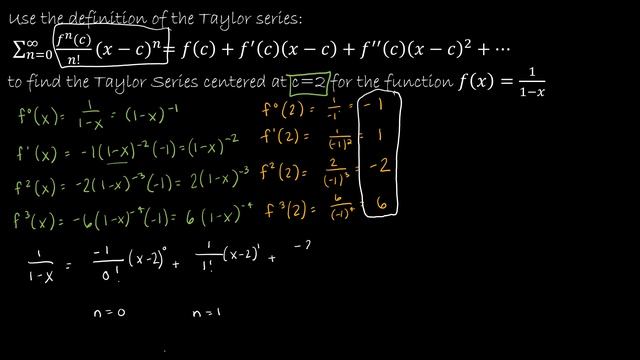 Use the definition of the Taylor series:
∑_{n=0}^{∞} f^n(c)/n! (x − c)^n = f(c) + f′(c)(x − c) + f′′(c)(x − c)^2 + ⋯
to find the Taylor Series centered at c=2 for the function f(x) = 1/(1−x)
f^0(x) = 1/(1-x) = (1-x)^-1
f^0(2) = 1/-1 = -1
f'(x) = -1(1-x)^-2(-1) = (1-x)^-2
f'(2) = 1/(-1)^2 = 1
f^2(x) = -2(1-x)^-3(-1) = 2(1-x)^-3
f^2(2) = 2/(-1)^3 = -2
f^3(x) = -6(1-x)^-4(-1) = 6(1-x)^-4
f^3(2) = 6/(-1)^4 = 6
1/(1-x) = -1/0! (x-2)^0 + 1/1! (x-2)^1 + -2
n=0 n=1